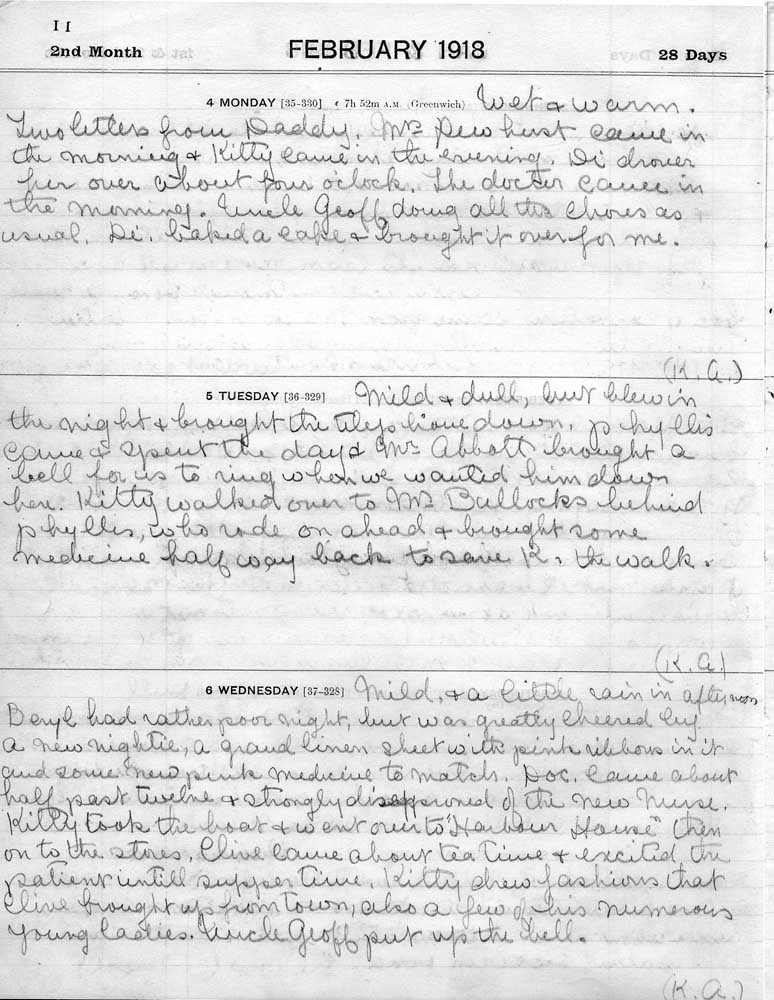 11
2nd Month FEBRUARY 1918 28 Days
4 MONDAY [35-330] ☾ 7h 52m A.M. (Greenwich) Wet & warm.
Two letters from Daddy. Mrs Dewhurst came in
the morning & Kitty came in the evening. Di drove
her over about four o'clock. The doctor came in
the morning. Uncle Geoff doing all the chores as
usual. Di. baked a cake & brought it over for me.
(K. A.)
5 TUESDAY [36-329] Mild & dull, but blew in
the night & brought the telephone down. Phyllis
came & spent the day & Mr Abbott brought a
bell for us to ring when we wanted him down
here. Kitty walked over to Mrs Bullocks behind
Phyllis, who rode on ahead & brought some
medicine half way back to save K. the walk.
(K. A.)
6 WEDNESDAY [37-328] Mild, & a little rain in afternoon
Beryl had rather poor night, but was greatly cheered by
a new nightie, a grand linen sheet with pink ribbons in it
and some new pink medicine to match. Doc. came about
half past twelve & strongly disapproved of the new Nurse.
Kitty took the boat & went over to "Harbour House" then
on to the stores. Clive came about tea time & excited the
patient untill supper time. Kitty drew fashions that
Clive brought up from town, also a few of his numerous
young ladies. Uncle Geoff put up the bell.
(K. A.)